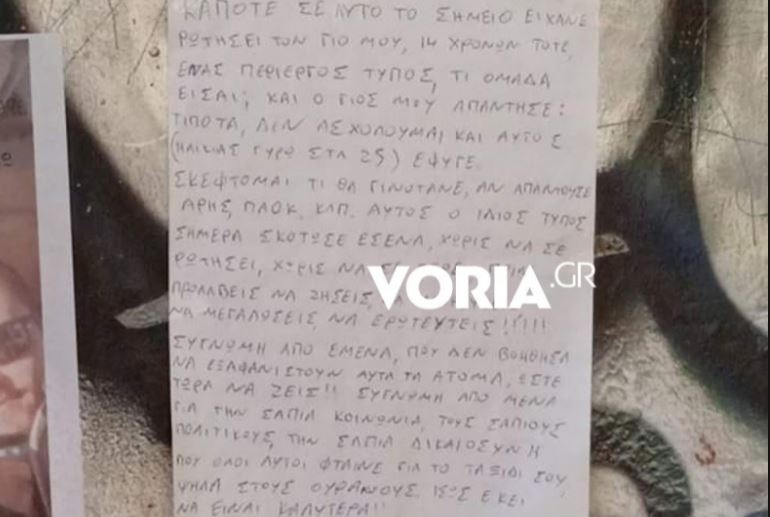 ΚΑΠΟΤΕ ΣΕ ΑΥΤΟ ΤΟ ΣΗΜΕΙΟ ΕΙΧΑΝΕ
ΡΩΤΗΣΕΙ ΤΟΝ ΓΙΟ ΜΟΥ, 14 ΧΡΟΝΩΝ ΤΟΤΕ,
ΕΝΑΣ ΠΕΡΙΕΡΓΟΣ ΤΥΠΟΣ, ΤΙ ΟΜΑΔΑ
ΕΙΣΑΙ; ΚΑΙ Ο ΓΙΟΣ ΜΟΥ ΑΠΑΝΤΗΣΕ:
ΤΙΠΟΤΑ, ΔΕΝ ΑΣΧΟΛΟΥΜΑΙ ΚΑΙ ΑΥΤΟΣ
(ΗΛΙΚΙΑΣ ΓΥΡΩ ΣΤΑ 25) ΕΦΥΓΕ.
ΣΚΕΦΤΟΜΑΙ ΤΙ ΘΑ ΓΙΝΟΤΑΝΕ, ΑΝ ΑΠΑΝΤΟΥΣΕ
ΑΡΗΣ, ΠΑΟΚ. ΚΛΠ. ΑΥΤΟΣ Ο ΙΔΙΟΣ ΤΥΠΟΣ
ΣΗΜΕΡΑ ΣΚΟΤΩΣΕ ΕΣΕΝΑ, ΧΩΡΙΣ ΝΑ ΣΕ
ΡΩΤΗΣΕΙ, ΧΩΡΙΣ ΝΑ
VORIA.GR
ΠΡΟΛΑΒΕΙΣ ΝΑ ΖΗΣΕΙΣ,
ΝΑ ΜΕΓΑΛΩΣΕΙΣ, ΝΑ ΕΡΩΤΕΥΤΕΙΣ!!!!!!
ΣΥΓΝΩΜΗ ΑΠΟ ΕΜΕΝΑ, ΠΟΥ ΔΕΝ ΒΟΗΘΗΣΑ
ΝΑ ΕΞΑΦΑΝΙΣΤΟΥΝ ΑΥΤΑ ΤΑ ΑΤΟΜΑ, ΩΣΤΕ
ΤΩΡΑ ΝΑ ΖΕΙΣ!! ΣΥΓΝΩΜΗ ΑΠΟ ΜΕΝΑ
ΓΙΑ ΤΗΝ ΣΑΠΙΑ ΚΟΙΝΩΝΙΑ, ΤΟΥΣ ΣΑΠΙΟΥΣ
ΠΟΛΙΤΙΚΟΥΣ, ΤΗΝ ΣΑΠΙΑ ΔΙΚΑΙΟΣΥΝΗ
ΠΟΥ ΟΛΟΙ ΑΥΤΟΙ ΦΤΑΙΝΕ ΓΙΑ ΤΟ ΤΑΞΙΔΙ ΣΟΥ
ΨΗΛΑ ΣΤΟΥΣ ΟΥΡΑΝΟΥΣ. ΙΣΩΣ ΕΚΕΙ
ΝΑ ΕΙΝΑΙ ΚΑΛΥΤΕΡΑ!!